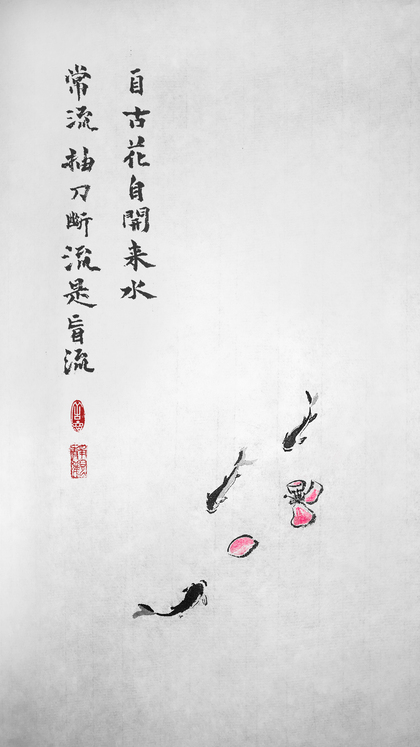 自古花自開来水
常流抽刀断流是盲流